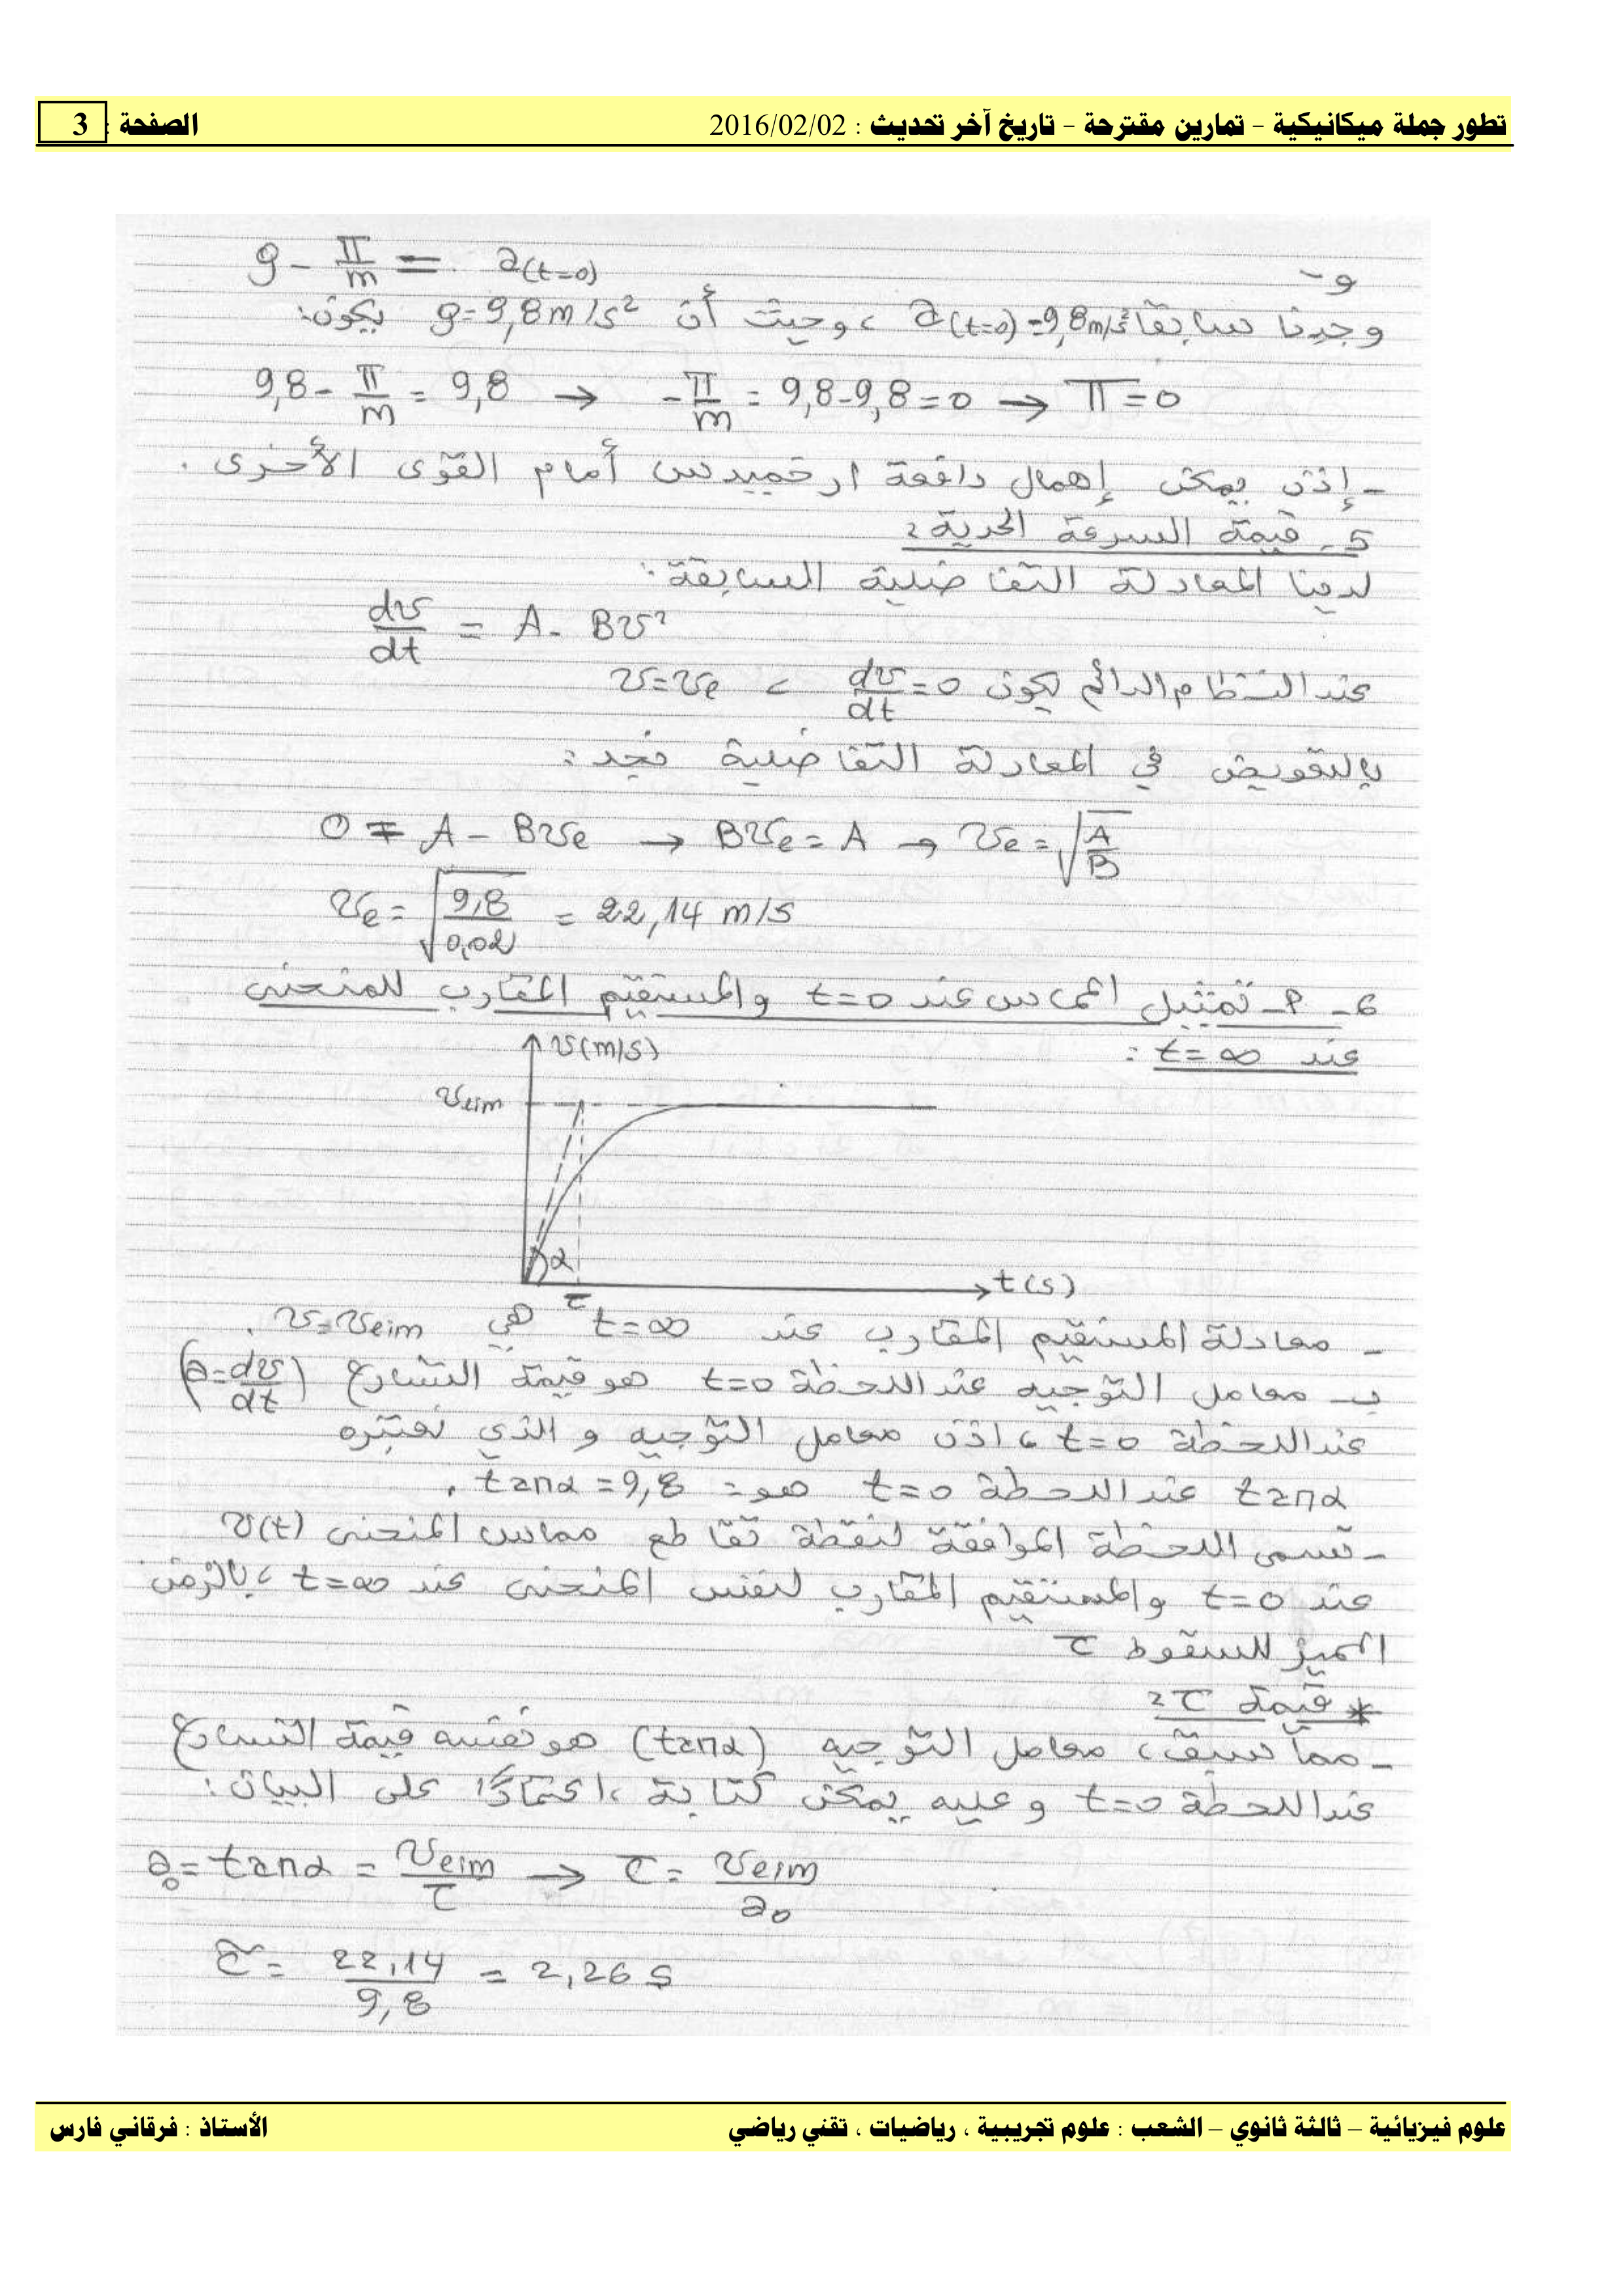 تطور جملة ميكانيكية - تمارين مقترحة - تاريخ آخر تحديث : 2016/02/02 الصفحة : 3
و-
g - π/m = a(t=0)
وجدنا سابقا a(t=0)=9,8m/s² ، وحيث أن g=9,8m/s² يكون:
9,8 - π/m = 9,8 → -π/m = 9,8-9,8=0 → π=0
- إذن يمكن إهمال دافعة ارخميدس أمام القوى الأخرى .
5- قيمة السرعة الحدية :
لدينا المعادلة التفاضلية السابقة :
dv/dt = A - Bv²
عند النظام الدائم يكون dv/dt=0 ، v=ve
بالتعويض في المعادلة التفاضلية نجد :
0 = A - Bve → Bve = A → ve = √(A/B)
ve = √(9,8/0,02) = 22,14 m/s
6- أ- تمثيل المماس عند t=0 والمستقيم المقارب للمنحنى
عند t=∞ :
v(m/s)
vlim
α
τ
t(s)
- معادلة المستقيم المقارب عند t=∞ هي v=vlim .
ب- معامل التوجيه عند اللحظة t=0 هو قيمة التسارع (a=dv/dt)
عند اللحظة t=0 ، اذن معامل التوجيه و الذي نعتبره
tanα عند اللحظة t=0 هو : tanα = 9,8 .
- تسمى اللحظة الموافقة لنقطة تقاطع مماس المنحنى v(t)
عند t=0 والمستقيم المقارب لنفس المنحنى عند t=∞ ، بالزمن
المميز للسقوط τ
* قيمة τ :
- مما سبق ، معامل التوجيه (tanα) هو نفسه قيمة التسارع
عند اللحظة t=0 وعليه يمكن كتابة ، اعتمادًا على البيان :
a₀ = tanα = vlim/τ → τ = vlim/a₀
τ = 22,14/9,8 = 2,26 s
علوم فيزيائية – ثالثة ثانوي – الشعب : علوم تجريبية ، رياضيات ، تقني رياضي الأستاذ : فرقاني فارس